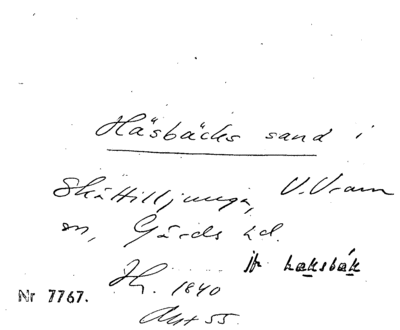 Häsbäcks sand i
Skättilljunga, V. Vram
sn, Gärds hd.
jfr hæksbák
Jh. 1840
Akt 55.
Nr 7767.